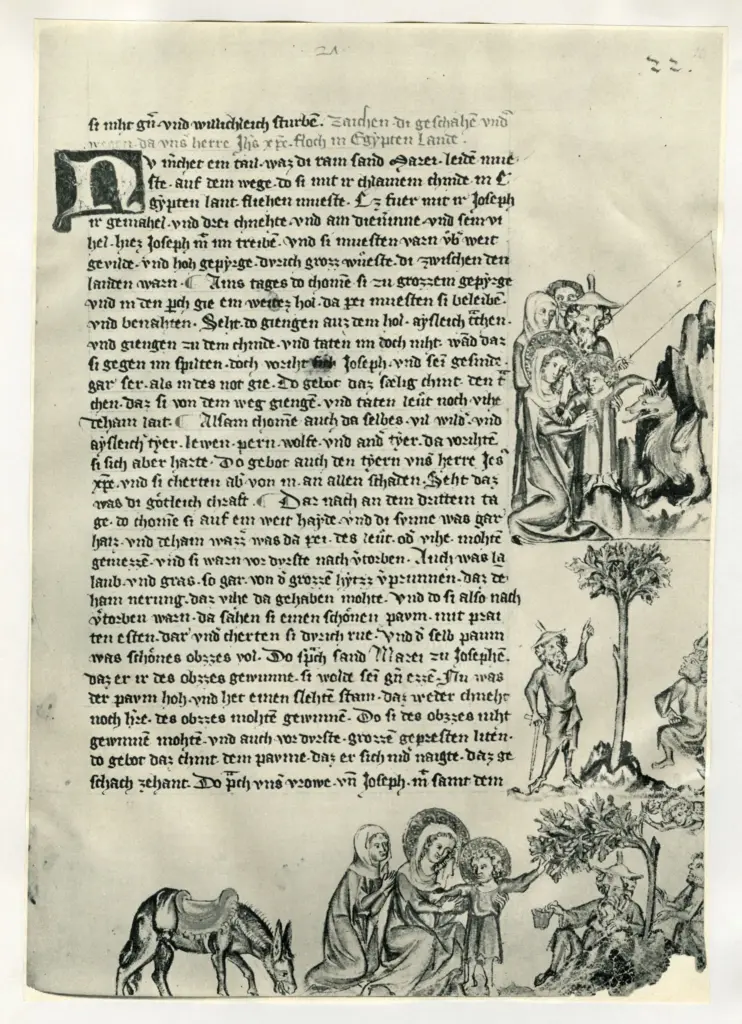 21
22.
si niht gn̄·vnd willichleich sturbē. Zaichen·di geschahē vnd̄
da vns herre Jhs xp̄e·floch in Egypten Lande.
Nv mchet ein tail·waz di rain sand Marei·leidē mue
ste·auf dem wege·do si mit ir chlainem chinde·in E
gypten lant·fliehen mueste. Ez fuer mit ir Joseph
ir gemahel·vnd drei chnehte·vnd ain diernīnne·vnd sein vi
hel·hiez Joseph m̄ im treibē. vnd si muesten varn vb̄ weit
gevilde·vnd hoh gepyrge·dvrich groz wueste·di zwischen den
landen warn. Ains tages do chomē si zu grozzem gepyrge
vnd in den p̄ch gie ein weitez hol·da pei muesten si beleibē
vnd benahten. Seht·do giengen auz dem hol·aysleich tr̄chen.
vnd giengen zu dem chinde·vnd taten im doch niht·wād daz
si gegen im spilten·doch voriht sich Joseph·vnd sei gesinde.
gar ser·als in des not gie. Do gebot daz sælig chint·den t̄
chen·daz si von dem weg giengē·vnd taten leut noch vihe
deham lait. Alsam chomē auch da selbes·vil wild·vnd
aysleich tyer·lewen·pern·wolfe·vnd and̄ tyer·da vorihtē
si sich aber harte. Do gebot auch den tyern vns̄ herre Jes̄
xp̄e·vnd si cherten ab̄·von in·an allen schaden. Seht daz
was di götleich chraft. Dar nach an dem drittem ta
ge·do chomē si auf ein weit hayde·vnd di synne was gar
haiz·vnd deham wazz̄ was da pei·des leut·od̄ vihe·mohtē
geniezzē·vnd si warn vor dvrste nach v̄torben. Auch was la
laub·vnd gras·so gar·von d̄ grozzē hytzz v̄prunnen·daz de
ham nerung·daz vihe da gehaben mohte. Vnd do si also nach
v̄torben warn·da sahen si einen schönen pavm·mit prai
ten esten·dar vnd̄ cherten si dvrich rue. Vnd d̄ selb paum
was schönes obzzes vol. Do sp̄ch sand Marei zu Josephē.
daz er ir des obzzes gewunne·si wolde sei gn̄ ezzē. Nu was
der pavm hoh·vnd het einen slehtē stam·daz weder chneht
noch h̄re·des obzzes mohtē gewinnē. Do si des obzzes niht
gewinnē mohtē·vnd auch vor dvrste·grozzē gepresten litēn·
do gebot daz chint·dem pavme·daz er sich nid̄ naigte·daz ge
schach zehant. Do p̄ch vns̄ vrowe·vn̄ Joseph·m̄ samt dem